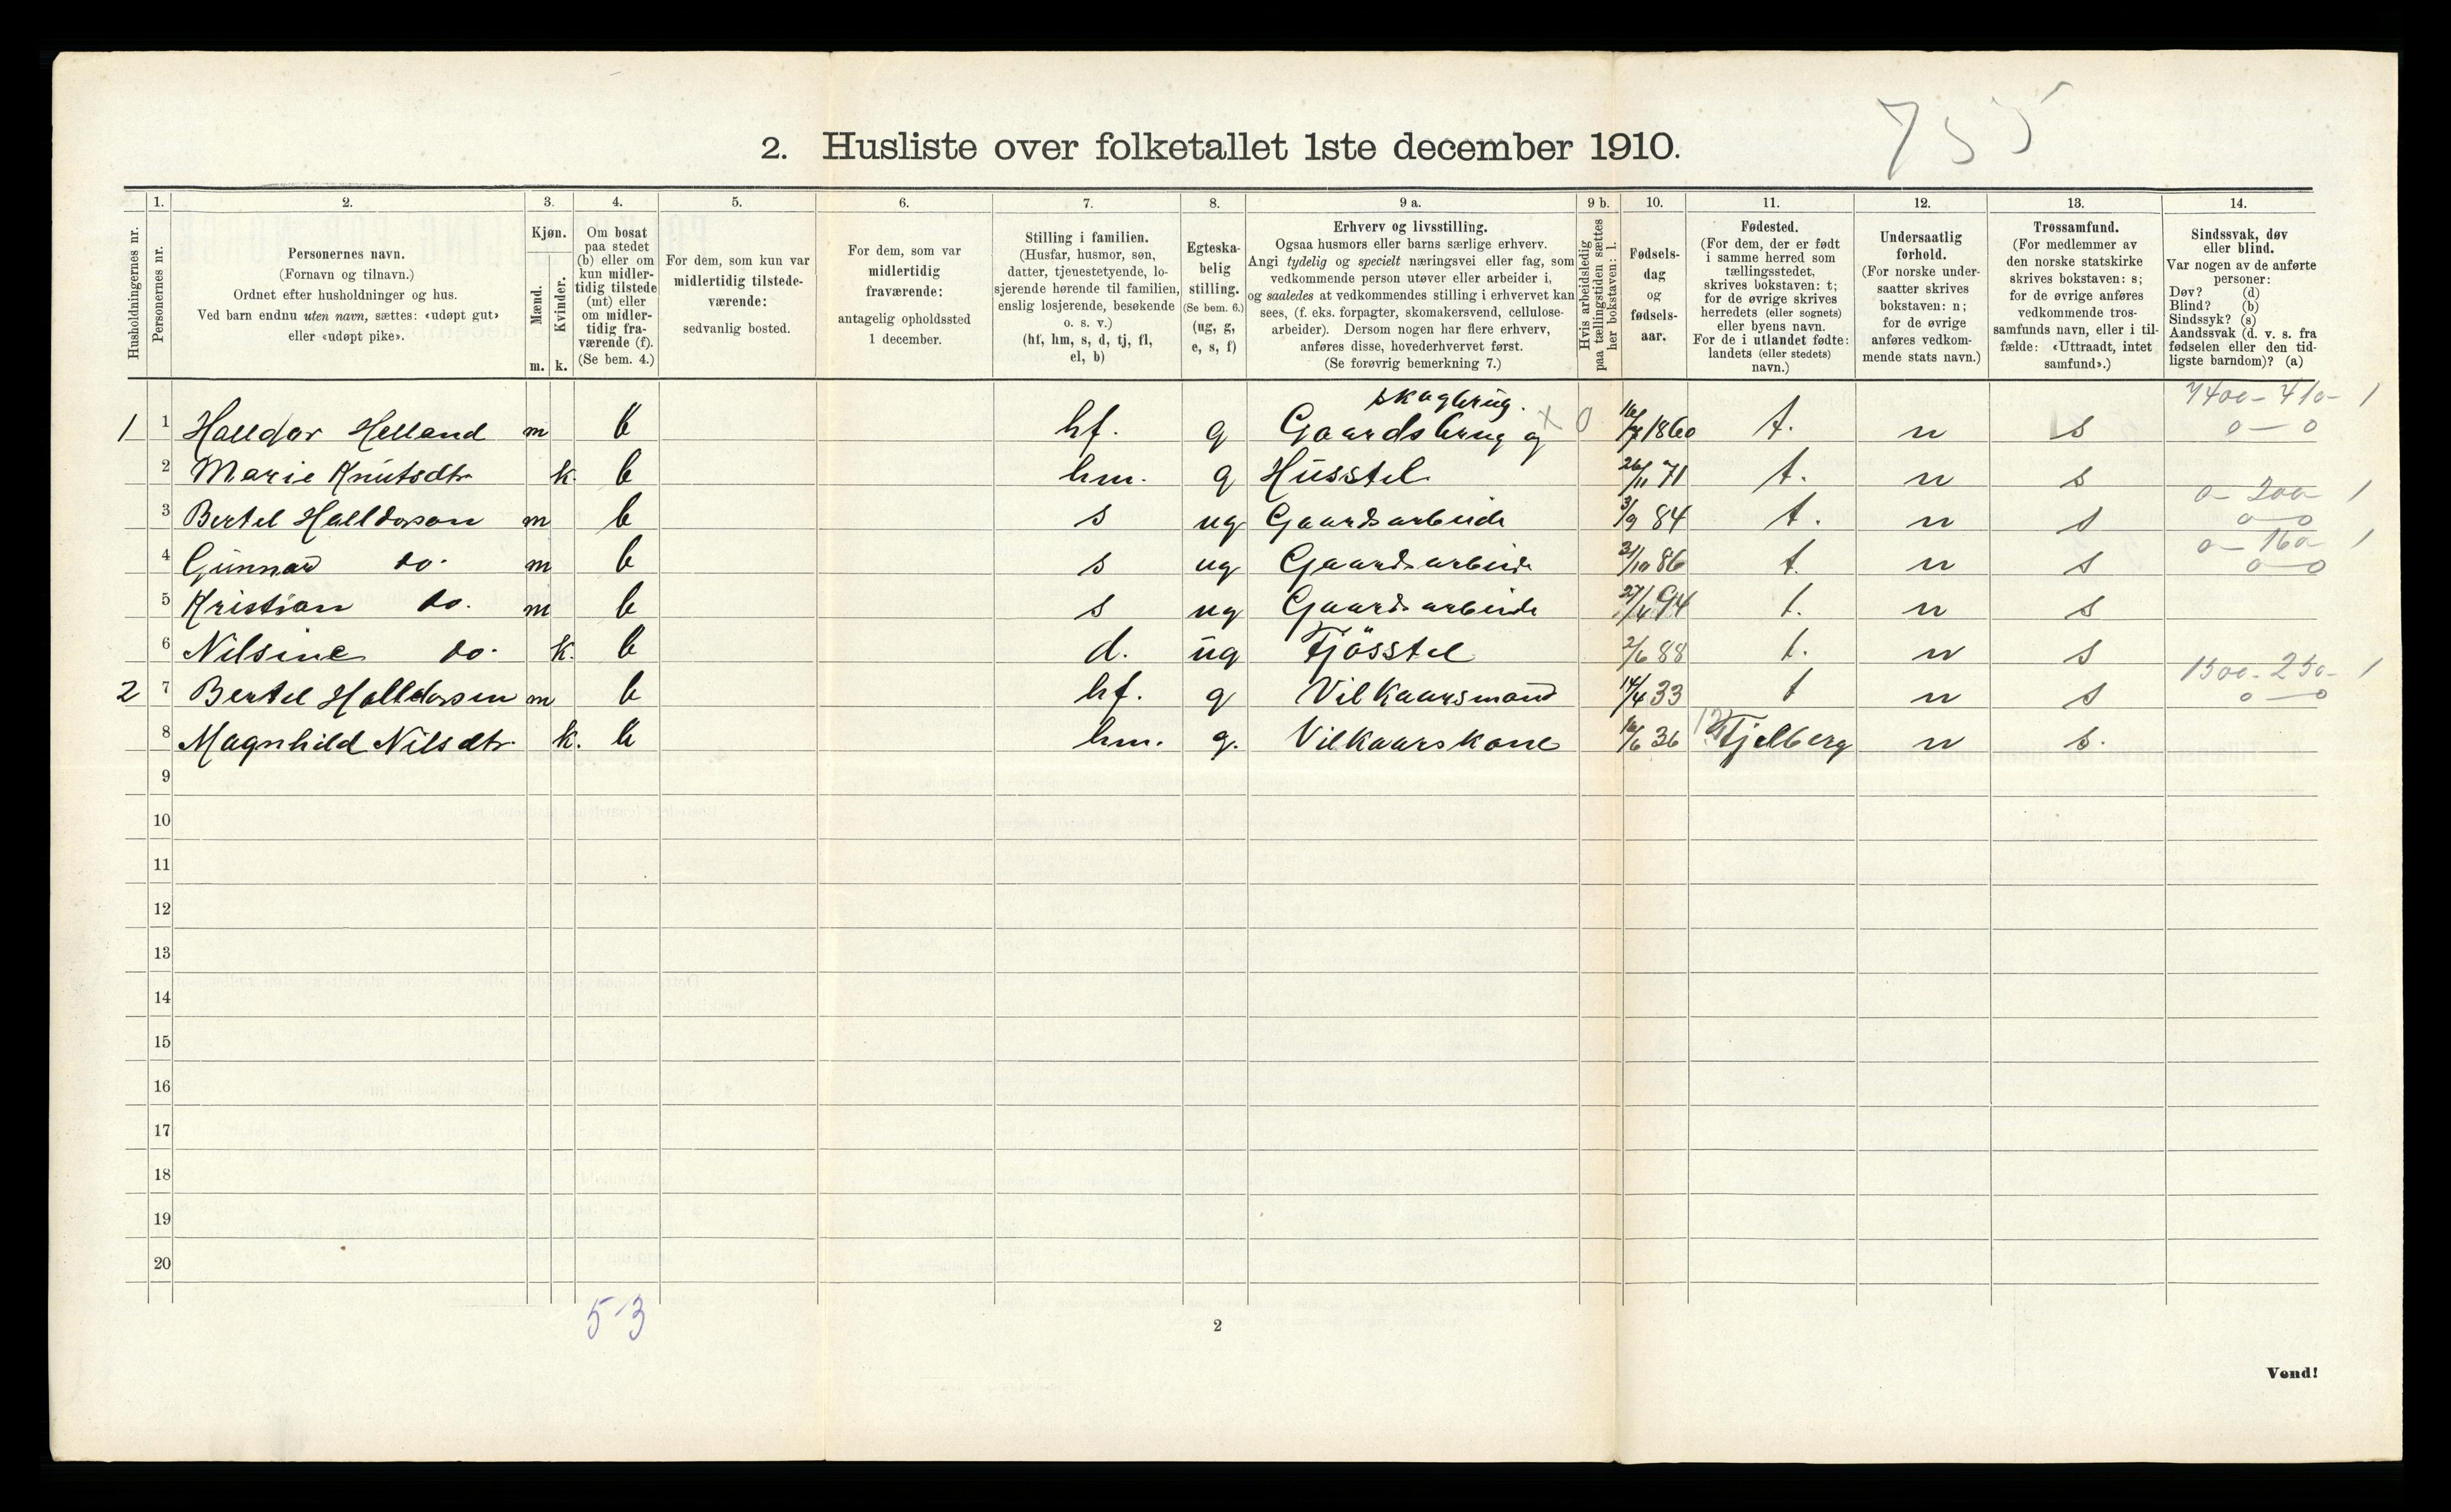 755
2. Husliste over folketallet 1ste december 1910.
Husholdningernes nr.
1.
Personernes nr.
2.
Personernes navn.
(Fornavn og tilnavn.)
Ordnet efter husholdninger og hus.
Ved barn endnu uten navn, sættes: «udøpt gut»
eller «udøpt pike».
3.
Kjøn.
Mænd.
Kvinder.
m. k.
4.
Om bosat
paa stedet
(b) eller om
kun midler-
tidig tilstede
(mt) eller
om midler-
tidig fra-
værende (f).
(Se bem. 4.)
5.
For dem, som kun var
midlertidig tilstede-
værende:
sedvanlig bosted.
6.
For dem, som var
midlertidig
fraværende:
antagelig opholdssted
1 december.
7.
Stilling i familien.
(Husfar, husmor, søn,
datter, tjenestetyende, lo-
sjerende hørende til familien,
enslig losjerende, besøkende
o. s. v.)
(hf, hm, s, d, tj, fl,
el, b)
8.
Egteska-
belig
stilling.
(Se bem. 6.)
(ug, g,
e, s, f)
9 a.
Erhverv og livsstilling.
Ogsaa husmors eller barns særlige erhverv.
Angi tydelig og specielt næringsvei eller fag, som
vedkommende person utøver eller arbeider i,
og saaledes at vedkommendes stilling i erhvervet kan
sees, (f. eks. forpagter, skomakersvend, cellulose-
arbeider). Dersom nogen har flere erhverv,
anføres disse, hovederhvervet først.
(Se forøvrig bemerkning 7.)
9 b.
Hvis arbeidsledig
paa tællingstiden sættes
her bokstaven: l.
10.
Fødsels-
dag
og
fødsels-
aar.
11.
Fødested.
(For dem, der er født
i samme herred som
tællingsstedet,
skrives bokstaven: t;
for de øvrige skrives
herredets (eller sognets)
eller byens navn.
For de i utlandet fødte:
landets (eller stedets)
navn.)
12.
Undersaatlig
forhold.
(For norske under-
saatter skrives
bokstaven: n;
for de øvrige
anføres vedkom-
mende stats navn.)
13.
Trossamfund.
(For medlemmer av
den norske statskirke
skrives bokstaven: s;
for de øvrige anføres
vedkommende tros-
samfunds navn, eller i til-
fælde: «Uttraadt, intet
samfund».)
14.
Sindssvak, døv
eller blind.
Var nogen av de anførte
personer:
Døv? (d)
Blind? (b)
Sindssyk? (s)
Aandssvak (d. v. s. fra
fødselen eller den tid-
ligste barndom)? (a)
skogbrug. 7400- 410- 1
1 1 Halldor Helland m b hf. g Gaardsbrug og x 0 1860 t. n s 0 — 0
2 Marie Knutsdtr k. b hm. g Husstel 26/11 71 t. n s
0- 200- 1
3 Bertel Halldorson m b s ug Gaardsarbeide 3/9 84 t. n s 0 — 0
0- 160- 1
4 Gunnar do. m b s ug Gaardsarbeide 31/10 86 t. n s 0 — 0
5 Kristian do. m b s ug Gaardsarbeide 27/4 94 t. n s
6 Nilsine do. k. b d. ug Fjösstel 2/6 88 t. n s
1500- 250- 1
2 7 Bertel Halldorsen m b hf. g Vilkaarsmand 14/4 33 t n s 0 — 0
8 Magnhild Nilsdtr. k. b hm. g. Vilkaarskone 16/6 36 Fjelberg n s.
9
10
11
12
13
14
15
16
17
18
19
20
5-3
2
Vend!